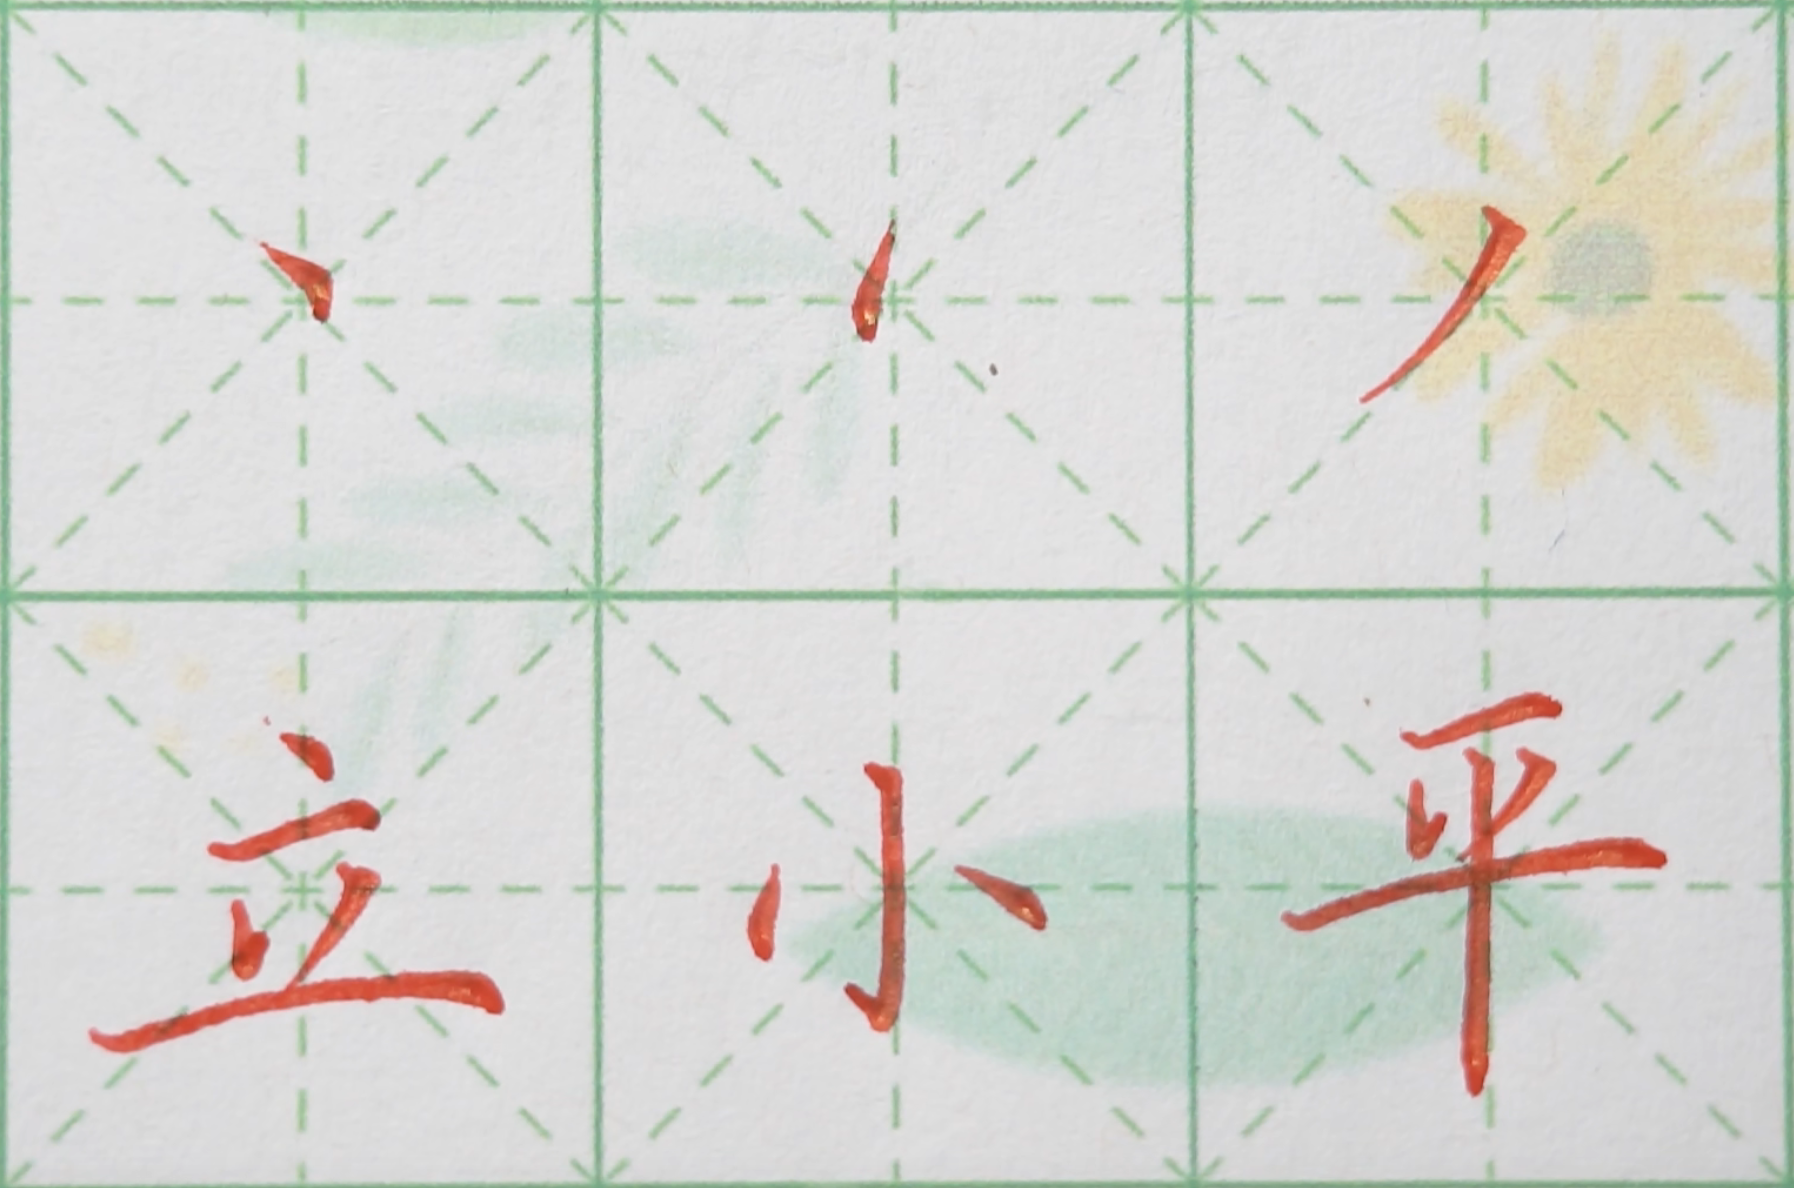 丶 丶 丿
立 小 平